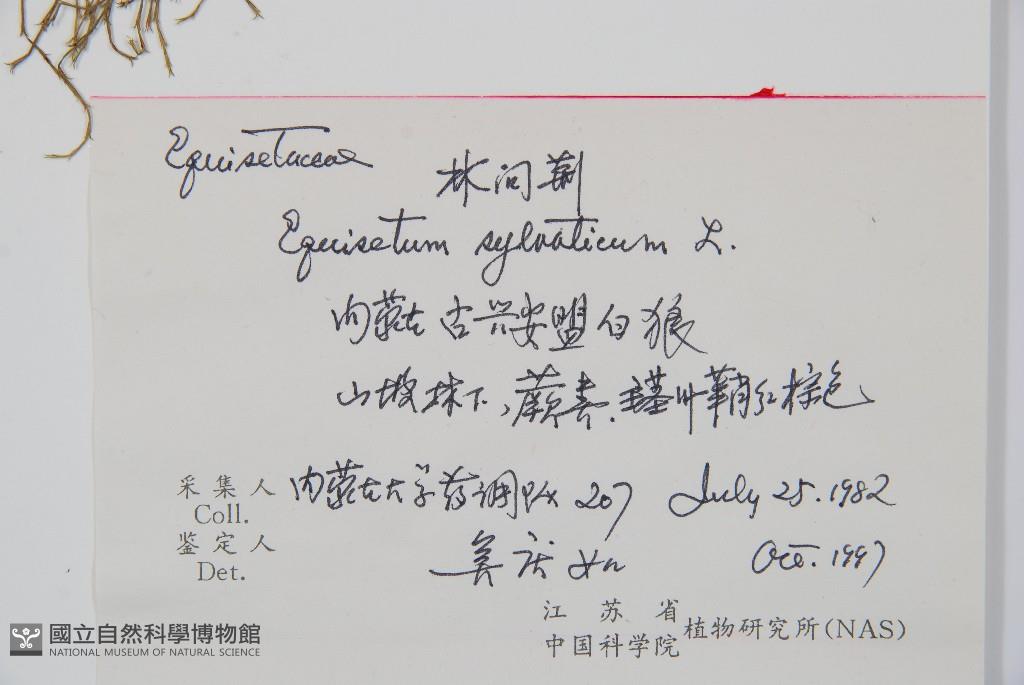 Equisetaceae
林问荆
Equisetum sylvaticum L.
内蒙古兴安盟白狼
山坡林下,
红棕色
采集人 内蒙古大学药调队 207 July 25. 1982
Coll.
鉴定人 Oct. 1997
Det.
江苏省
中国科学院 植物研究所(NAS)
國立自然科學博物館
NATIONAL MUSEUM OF NATURAL SCIENCE